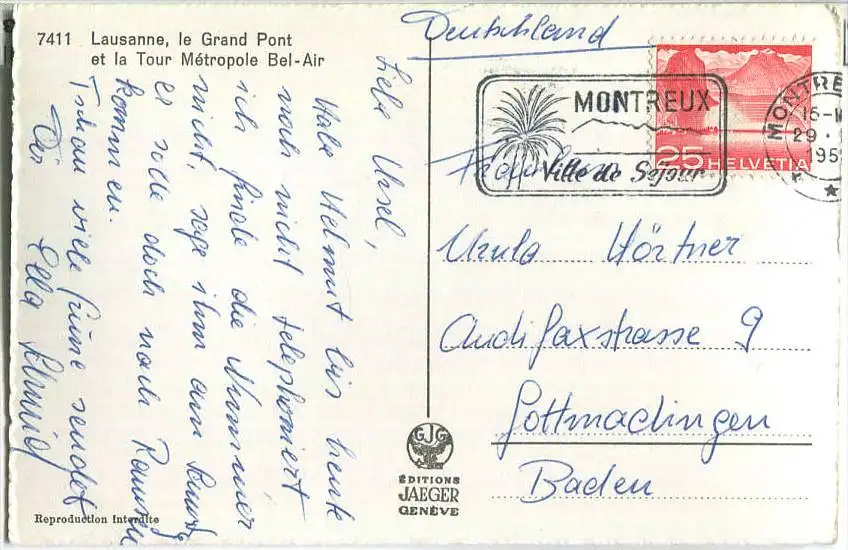 7411 Lausanne, le Grand Pont
et la Tour Métropole Bel-Air
Liebe Ursel,
Habe Helmut bis heute
noch nicht telephoniert
ich finde die Nummer
nicht, sage ihm am
er solle doch nach
kommen.
Tschau viele Grüsse sendet
Dir Ella Schmid
Reproduction Interdite
GJG
ÉDITIONS
JAEGER
GENÈVE
Deutschland
MONTREUX
Ville de Séjour
MONTRE
15-
29.
195
25 HELVETIA
Fräulein
Ursula Hörtner
Audifaxstrasse 9
Gottmadingen
Baden